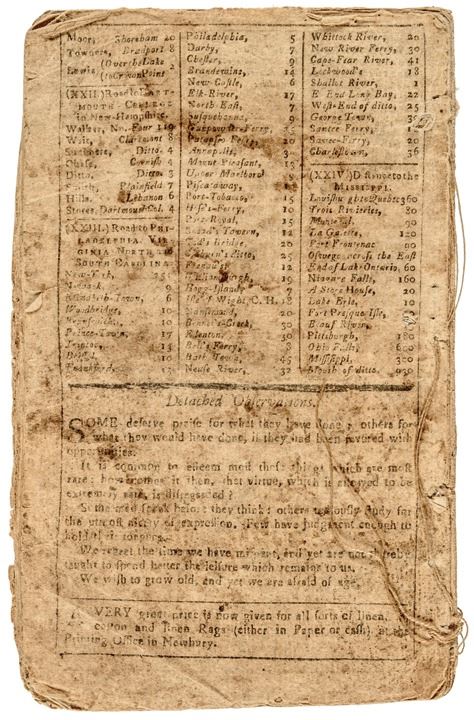 Moor, Shoreham 20
Towners, Bradport 8
(Over the Lake
Lewis, 2
to Crown Point
(XXII) Road to DART-
MOUTH COLLEGE
in New-Hampshire.
Walker, No. Four 119
Wait, Claremont 8
Ditto. 4
Chase, Cornish 4
Ditto, Ditto. 3
Smith, Plainfield 7
Hills, Lebanon 6
Storrs, Dartmouth Col. 4
(XXIII.) Road to PHI-
LADELPHIA, VIR-
GINIA, NORTH and
SOUTH CAROLINA.
New-York,
Newark, 9
Elizabeth-Town, 6
Woodbridge, 10
Brunswick,
Prince-Town, 17
Trenton,
Bristol,
Frankford,
Philadelphia, 5
Darby, 7
Chester, 9
Brandewine, 14
New-Castle, 6
Elk-River, 17
North-East, 7
Susquehanna, 9
Gunpowder-Ferry, 25
Patapsco Ferry, 20
Annapolis, 30
Mount Pleasant, 13
Upper Marlboro' 9
Piscataway,
Port-Tobacco,
Ferry, 10
Port-Royal, 15
Tavern, 12
Bridge, 20
ditto, 25
12
19
Bogg-Island,
Isle of Wight C. H. 18
Nansemond, 20
Bennet's-Creek, 30
Edenton, 30
Bell's-Ferry, 8
Bath Town, 45
Neuse River, 32
Whittock River, 20
New River Ferry, 30
Cape-Fear River, 41
Lockwood's 18
Shallot River, 1
E End Long Bay, 22
West-End of ditto, 25
George Town,
Santee Ferry, 12
Santee-Ferry, 20
Charlestown, 36
(XXIV.) Distance to the
MISSISIPPI.
to Quebec 360
Trois Rivieries, 80
90
La Galette,
Fort Frontenac 60
Oswego across the East
End of Lake Ontario, 60
Niagara Falls, 160
A Store House, 20
Lake Erie, 10
Fort Presque Isle,
Beauf River,
Pittsburgh, 180
Ohio Falls, 600
Missisippi,
Mouth of ditto.
Detached Observations.
SOME deserve praise for what they have done; others for
what they would have done, if they had been favored with
opportunities.
It is common to esteem most those things which are most
rare: how comes it then, that virtue, which is allowed to be
extremely rare, is disregarded?
Some men speak before they think; others tediously study for
the utmost nicety of expression. Few have judgment enough to
hold their tongues.
We regret the time we have mispent, and yet are not thereby
taught to spend better the leisure which remains to us.
We wish to grow old, and yet we are afraid of age.
A VERY great price is now given for all sorts of linen,
cotton and linen Rags (either in Paper or cash) at the
Printing Office in Newbury.